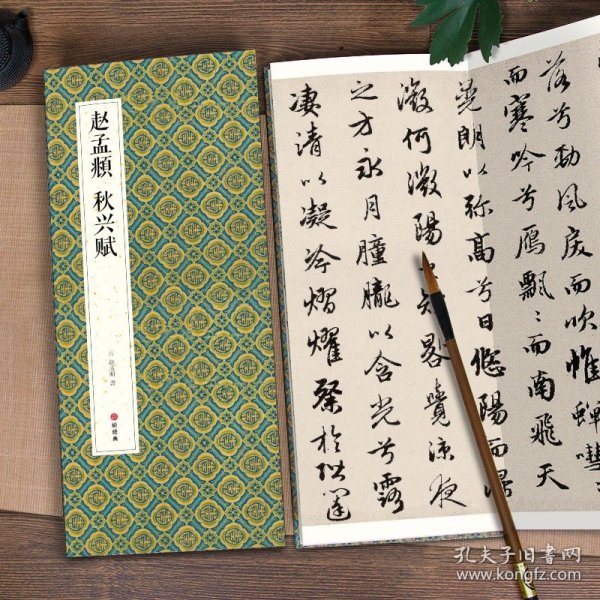 赵孟頫 秋兴赋
元 赵孟頫 书
落兮勁風戾而吹帷蟬嘒
而寒吟兮鴈飄〻而南飛天
晃朗以弥高兮日悠陽而浸
微何微陽之短晷覺涼夜
之方永月朣朧以含光兮露
凄清以凝冷熠耀粲於階闥
孔夫子旧书网
www.kongfz.com